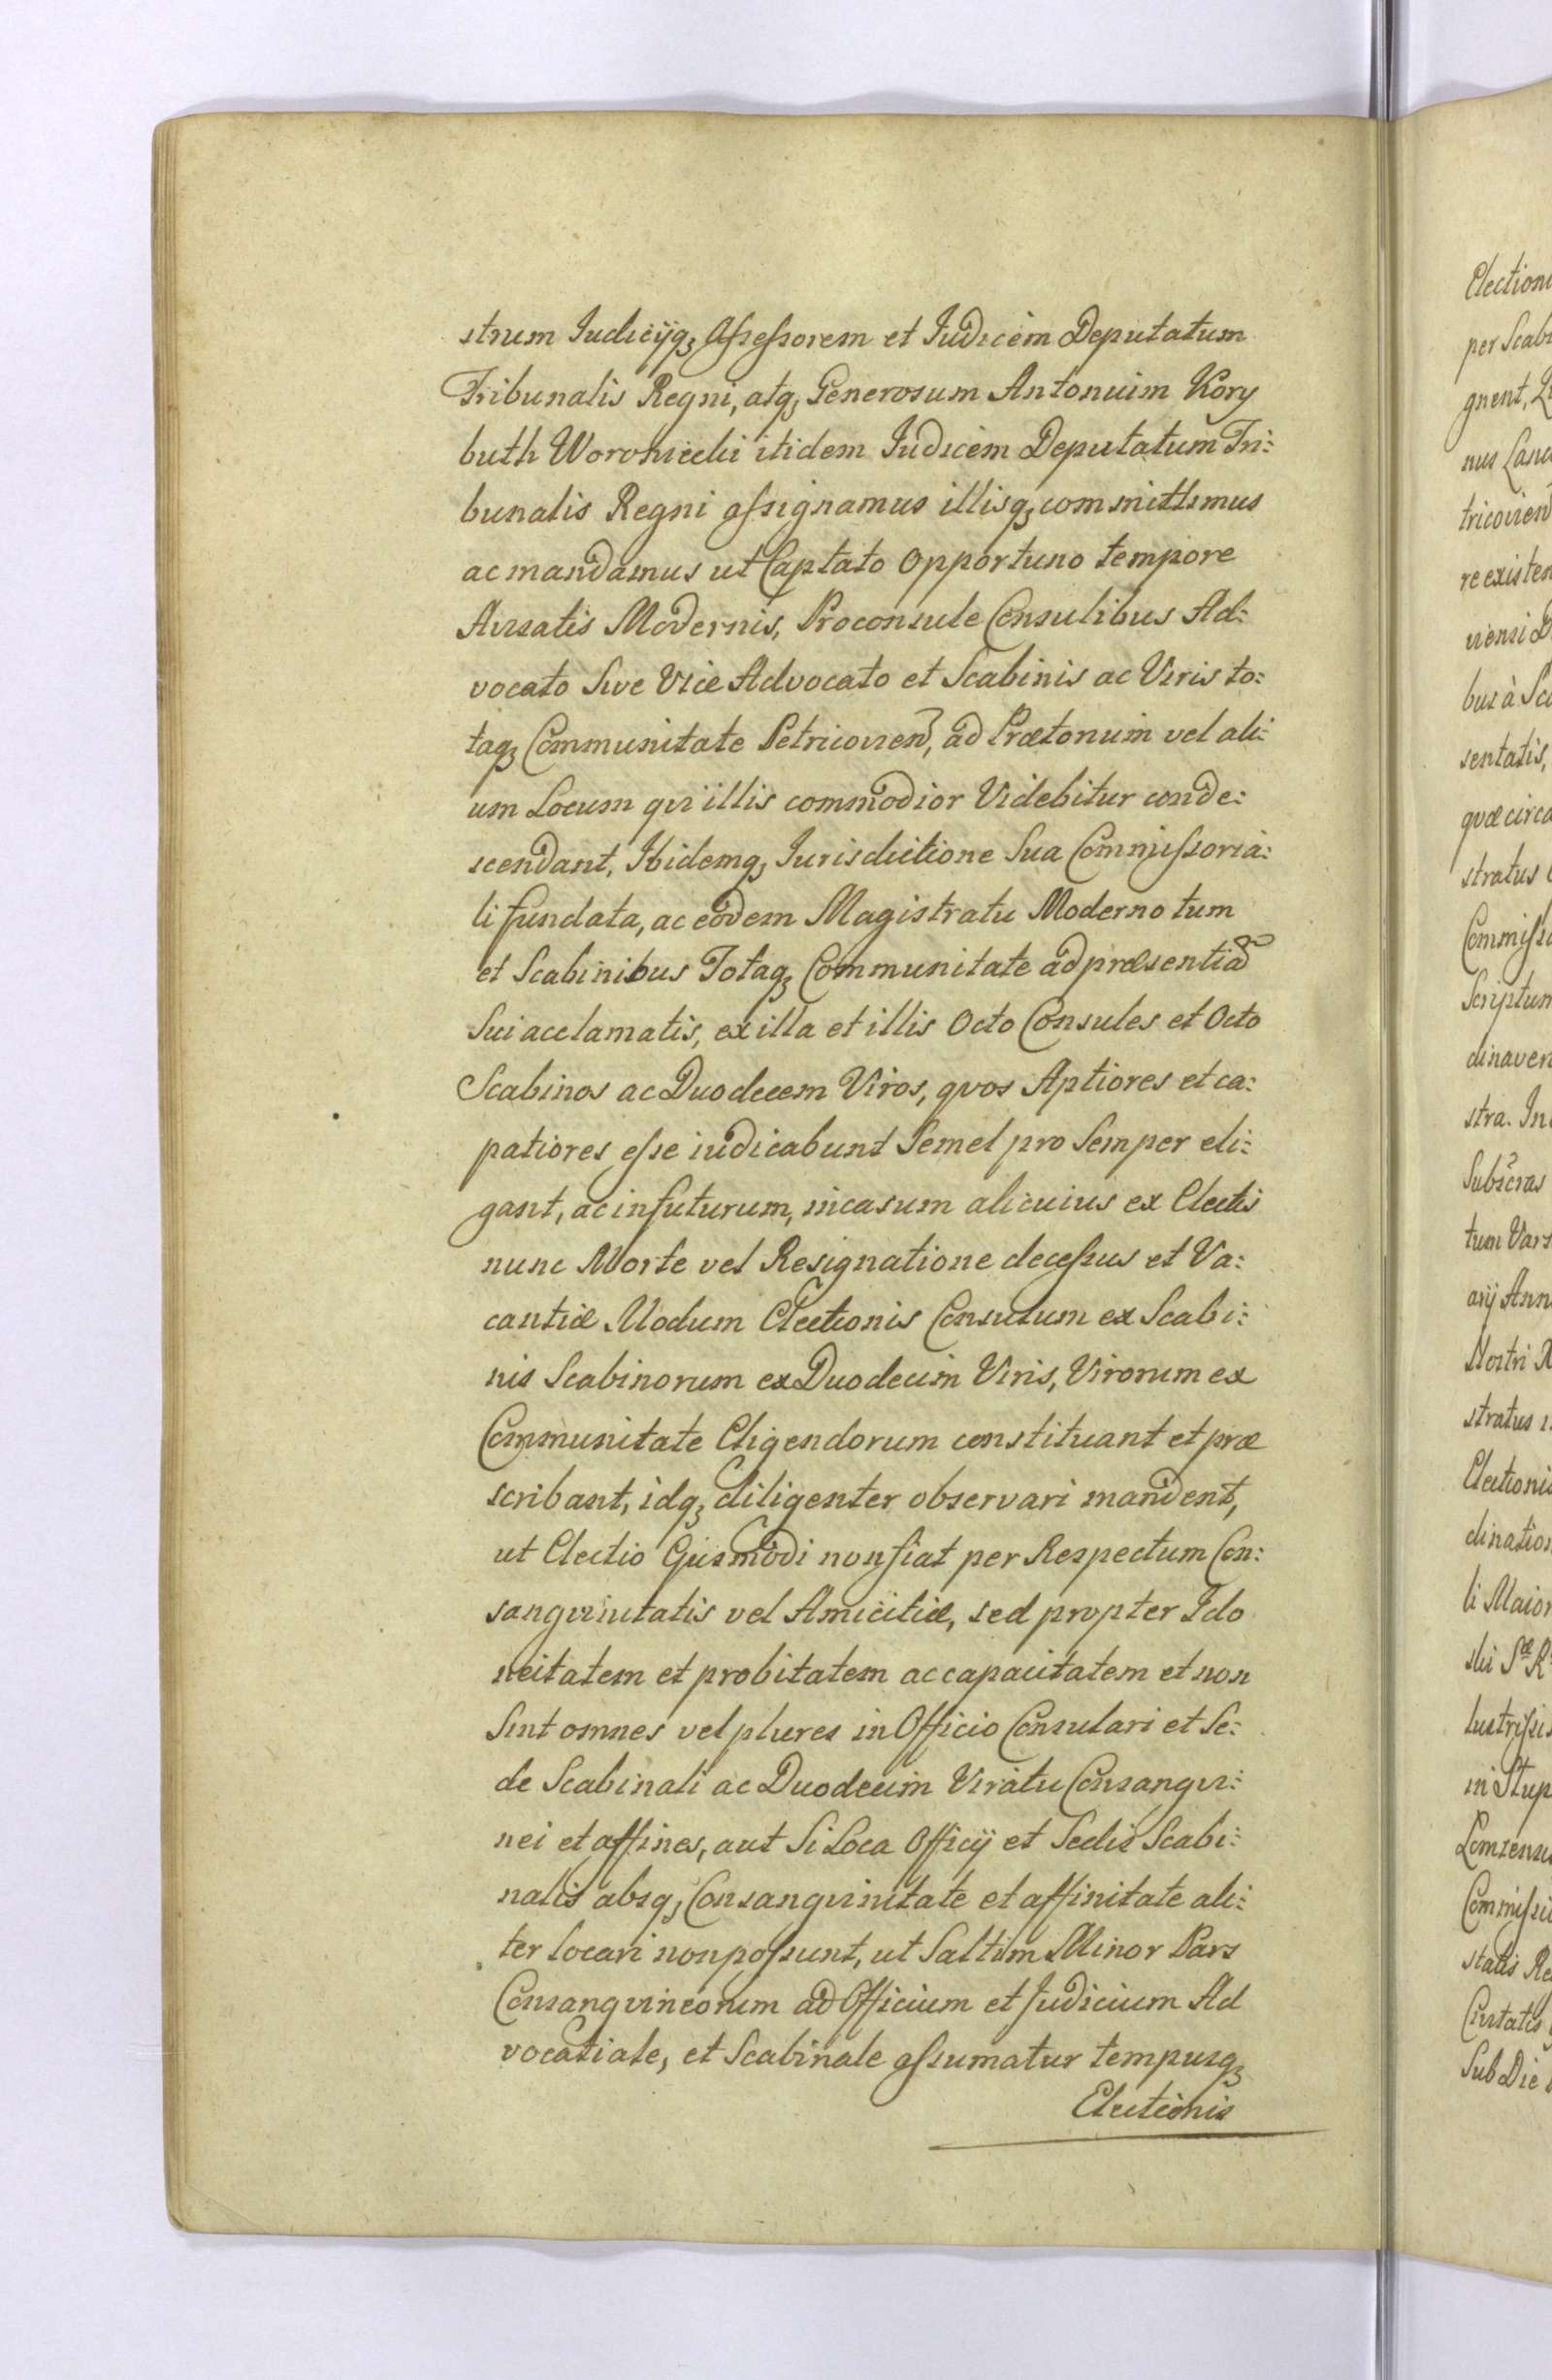 strum Iudicijq₃ Aſseſsorem et Iudicem Deputatum
Tribunalis Regni, atq₃ Generosum Antonium Kory
buth Woroniecki itidem Iudicem Deputatum Tri:
bunalis Regni aſsignamus illisq₃ committimus
ac mandamus ut Captato Opportuno tempore
Avizatis Modernis, Proconsule Consulibus Ad:
vocato Sive Vice Advocato et Scabinis ac Viris to:
taq₃ Communitate Petricovien, ad Prætorium vel ali:
um Locum qvi illis commodior Videbitur conde:
scendant, Ibidemq₃ Iurisdictione Sua Commiſsoria:
li fundata, ac eodem Magistratu Moderno tum
et Scabinibus Totaq₃ Communitate ad præsentiã
Sui acclamatis, ex illa et illis Octo Consules et Octo
Scabinos ac Duodecem Viros, qvos Aptiores et ca:
patiores eſse iudicabunt Semel pro Semper eli:
gant, ac in futurum, in casum alicuius ex Electis
nunc Morte vel Resignatione deceſsus et Va:
cantiæ Modum Electionis Consulum ex Scabi:
nis Scabinorum ex Duodecim Viris, Virorum ex
Communitate Eligendorum constituant et præ
scribant, idq₃ diligenter observari mandent,
ut Electio Ejusmodi non fiat per Respectum Con:
sangvinitatis vel Amicitiæ, sed propter Ido
neitatem et probitatem ac capacitatem et non
Sint omnes vel plures in Officio Consulari et Se:
de Scabinali ac Duodecim Viratu Consangvi:
nei et affines, aut Si Loca Officij et Sedis Scabi:
nalis absq₃ Consangvinitate et affinitate ali:
ter locari non poſsunt, ut Saltim Minor Pars
Consangvineorum ad Officium et Judicium Ad
vocatiale, et Scabinale aſsumatur tempusq₃
Electionis
Election
per Scabi
gnent,
nus Lanc
tricovien
re existen
viensi D
bus à Sca
sentatis,
qvæ circa
stratus
Commiſsa
Scriptum
dinaver
stra. In
Subscras
tum Vars
arij Ann
Nostri R
stratus
Electionis
dination
li Maior
ski Sæ R
lustriſsi
in Stup
Lomzensi
Commiſsi
statis Re
Civitatis
Sub Die